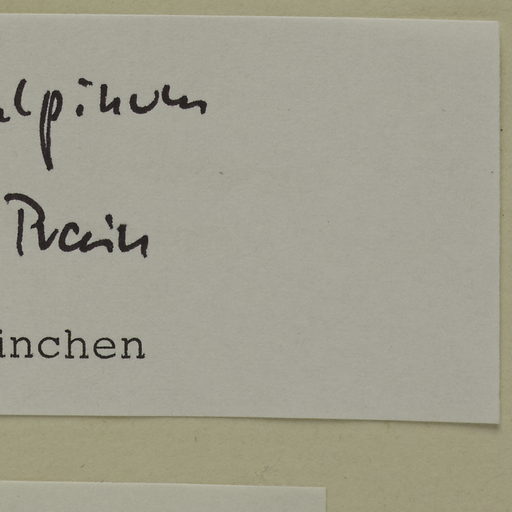 alpinum
Prain
inchen